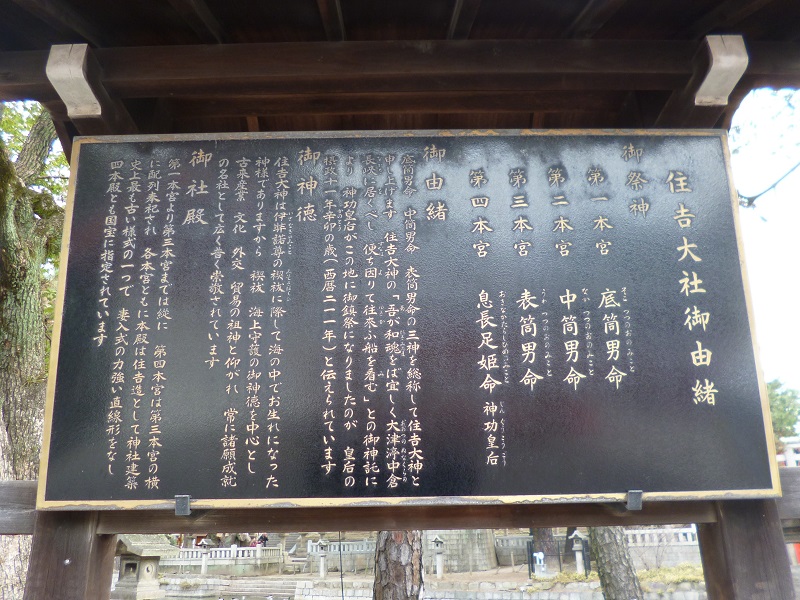 住吉大社御由緒
御祭神
第一本宮 底筒男命
そこつつのおのみこと
第二本宮 中筒男命
なかつつのおのみこと
第三本宮 表筒男命
うわつつのおのみこと
第四本宮 息長足姫命 神功皇后
おきながたらしひめのみこと じんぐうこうごう
御由緒
底筒男命 中筒男命 表筒男命の三神を総称して住吉大神と
申し上げます 住吉大神の「吾が和魂をば宜しく大津渟中倉
長峡に居くべし 便ち因りて往来ふ船を看む」との御神託に
より 神功皇后がこの地に御鎮祭になりましたのが 皇后の
摂政十一年辛卯の歳(西暦二一一年)と伝えられています
御神徳
住吉大神は伊弉諾尊の禊祓に際して海の中でお生れになった
神様でありますから 禊祓 海上守護の御神徳を中心とし
古来産業 文化 外交 貿易の祖神と仰がれ 常に諸願成就
の名社として広く普く崇敬されています
御社殿
第一本宮より第三本宮までは縦に 第四本宮は第三本宮の横
に配列奉祀され 各本宮ともに本殿は住吉造として神社建築
史上最も古い様式の一つで 妻入式の力強い直線形をなし
四本殿とも国宝に指定されています